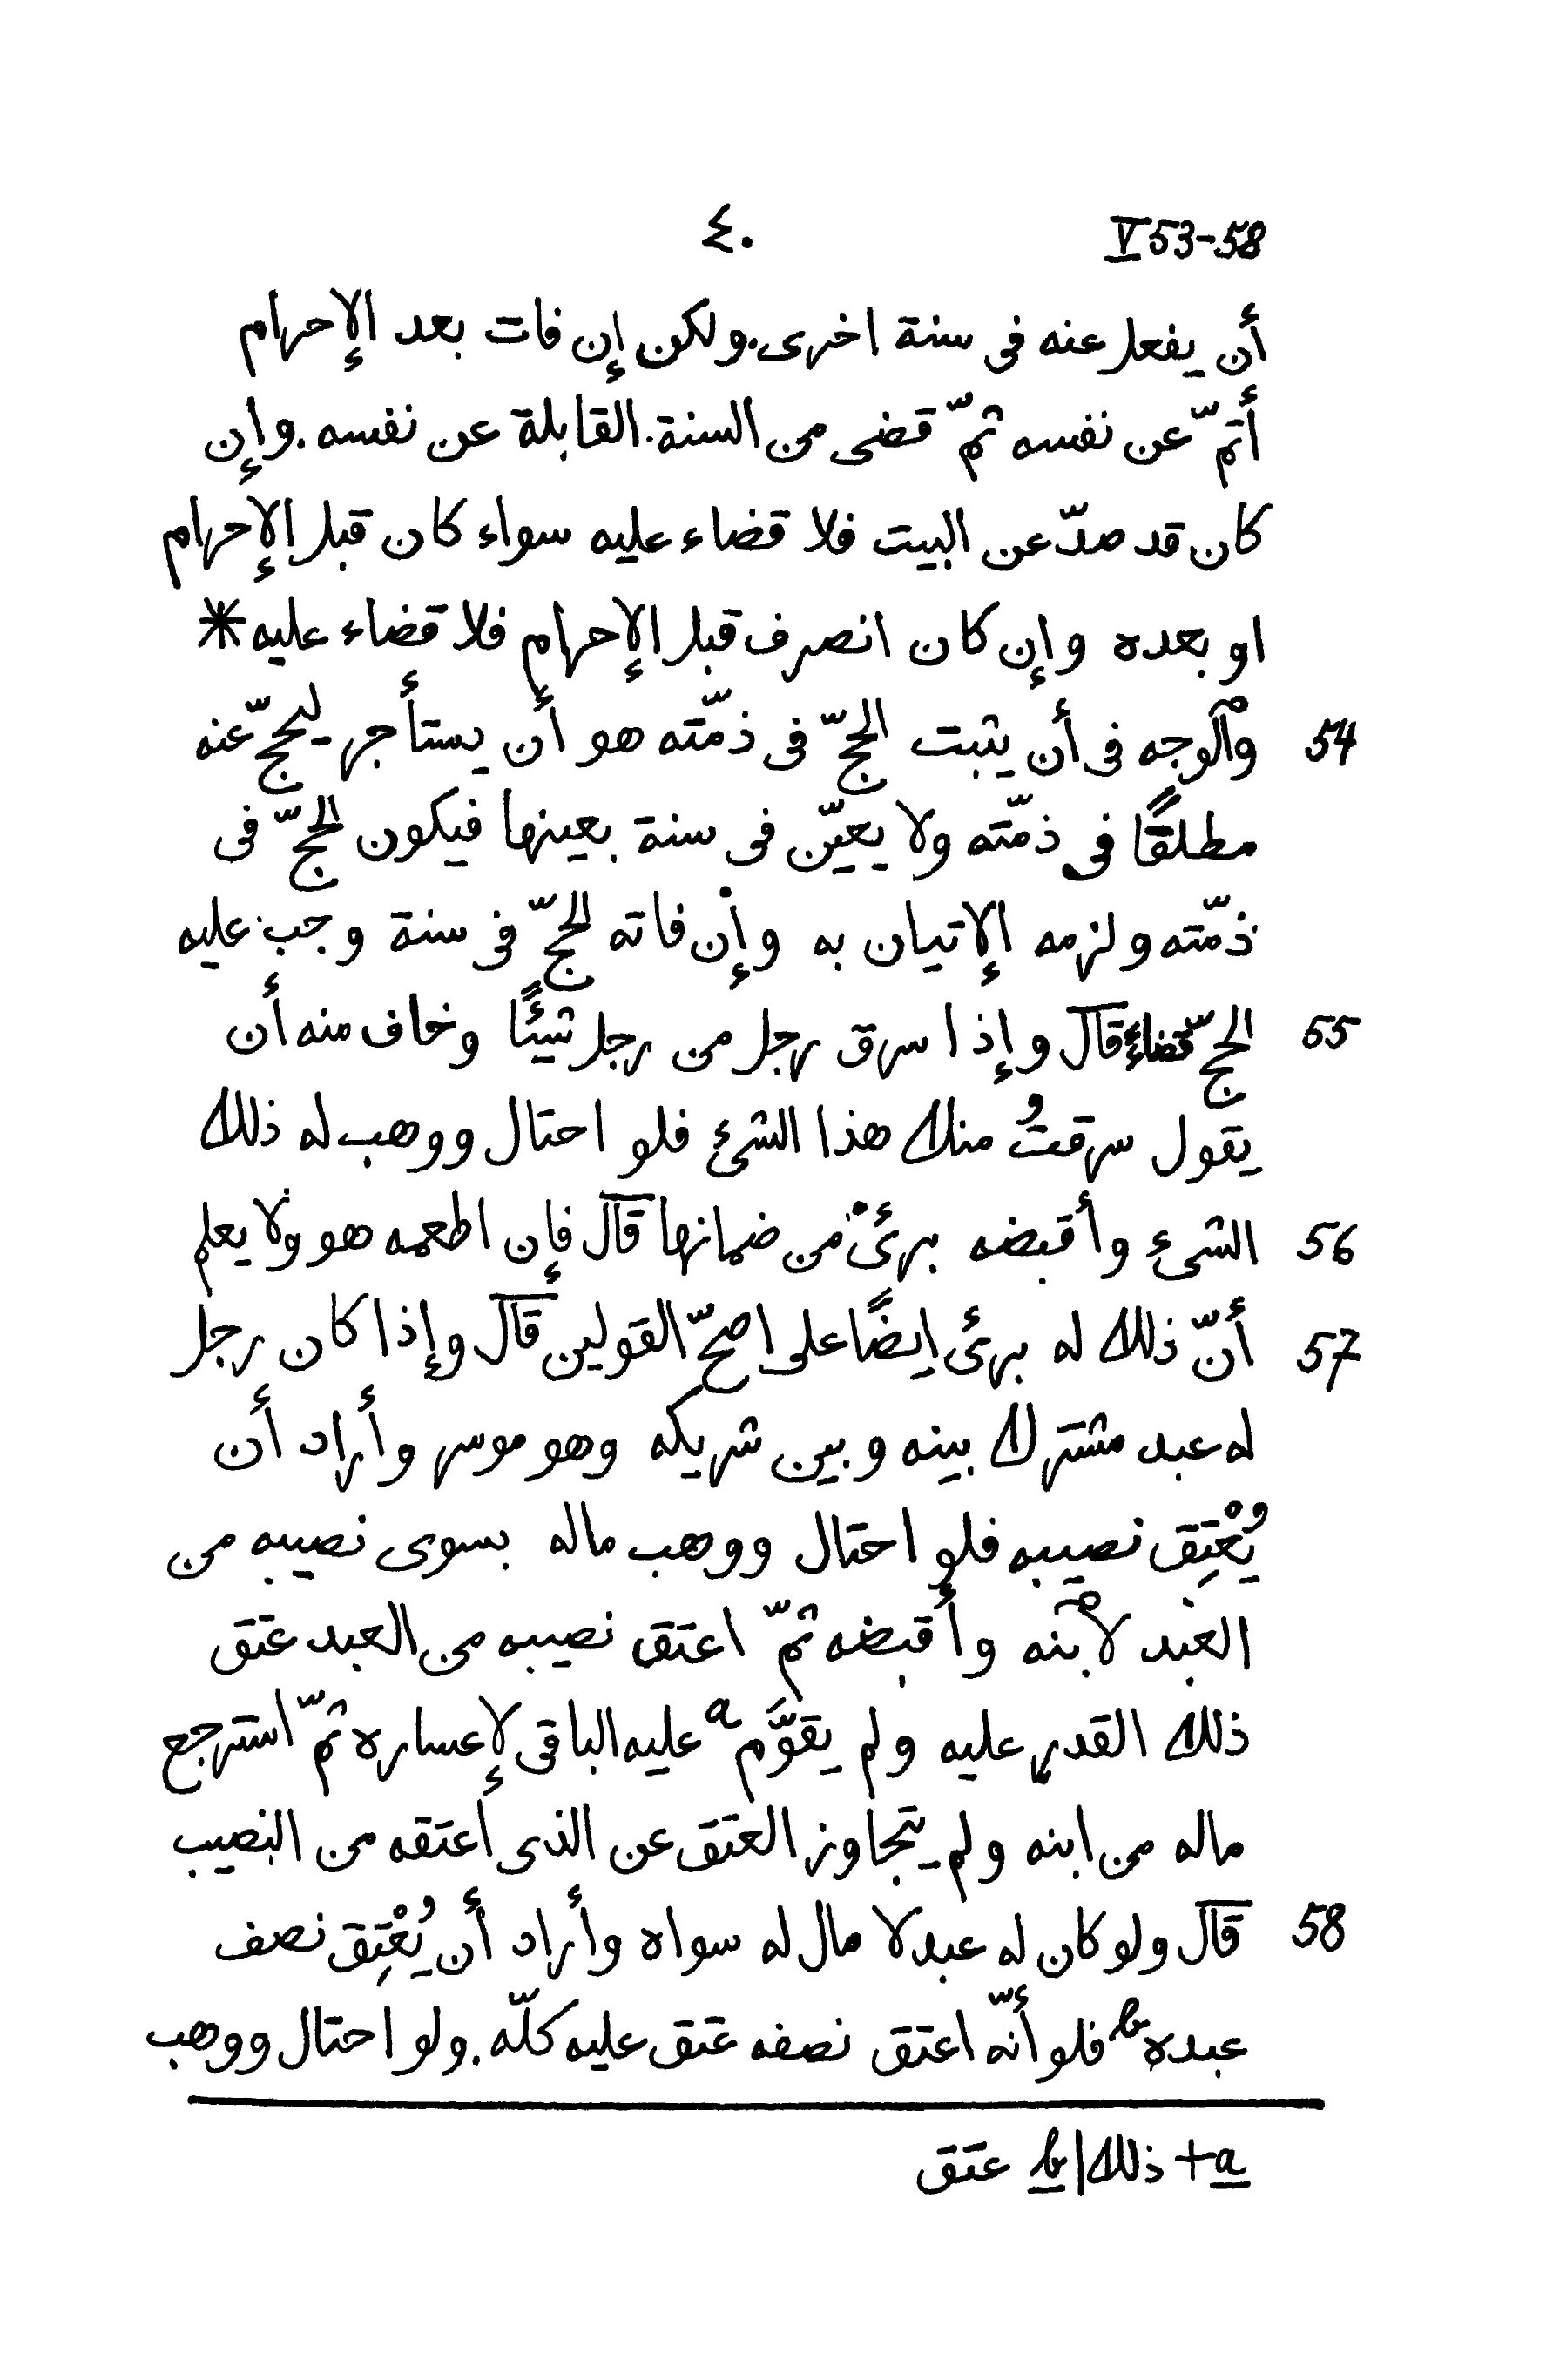 ٤٠ V 53-58
أن يفعل عنه فى سنة اخرى. ولكن إن فات بعد الإحرام
أتمّ عن نفسه ثمّ قضى من السنة القابلة عن نفسه. وإن
كان قد صدّ عن البيت فلا قضاء عليه سواء كان قبل الإحرام
او بعده وإن كان انصرف قبل الإحرام فلا قضاء عليه *
54 وٱلوجه فى أن يثبت الحجّ فى ذمّته هو أن يستأجر ليحجّ عنه
مطلقًا فى ذمّته ولا يعيّن فى سنة بعينها فيكون الحجّ فى
ذمّته ولزمه الإتيان به وإن فاته الحجّ فى سنة وجب عليه
55 الحجّ قضاءً قال وإذا سرق رجل من رجل شيئًا وخاف منه أن
يقول سرقتُ منك هذا الشئ فلو احتال ووهب له ذلك
56 الشىء وأقبضه برئ من ضمانها قال فإن اطعمه هو ولا يعلم
57 أنّ ذلك له برئ ايضًا على اصحّ القولين قال وإذا كان رجل
له عبد مشترك بينه وبين شريكه وهو موسر وأراد أن
يُعْتِق نصيبه فلو احتال ووهب ماله بسوى نصيبه من
العبد لٱبنه وأقبضه ثمّ اعتق نصيبه من العبد عتق
ذلك القدر عليه ولم يقوَّم a عليه الباقى لإعساره ثمّ استرجع
ماله من ابنه ولم يتجاوز العتق عن الذى اعتقه من النصيب
58 قال ولو كان له عبد لا مال له سواه وأراد أن يُعْتِق نصف
عبده b فلو أنّه اعتق نصفه عتق عليه كلّه. ولو احتال ووهب
a + ذلك | b عتق